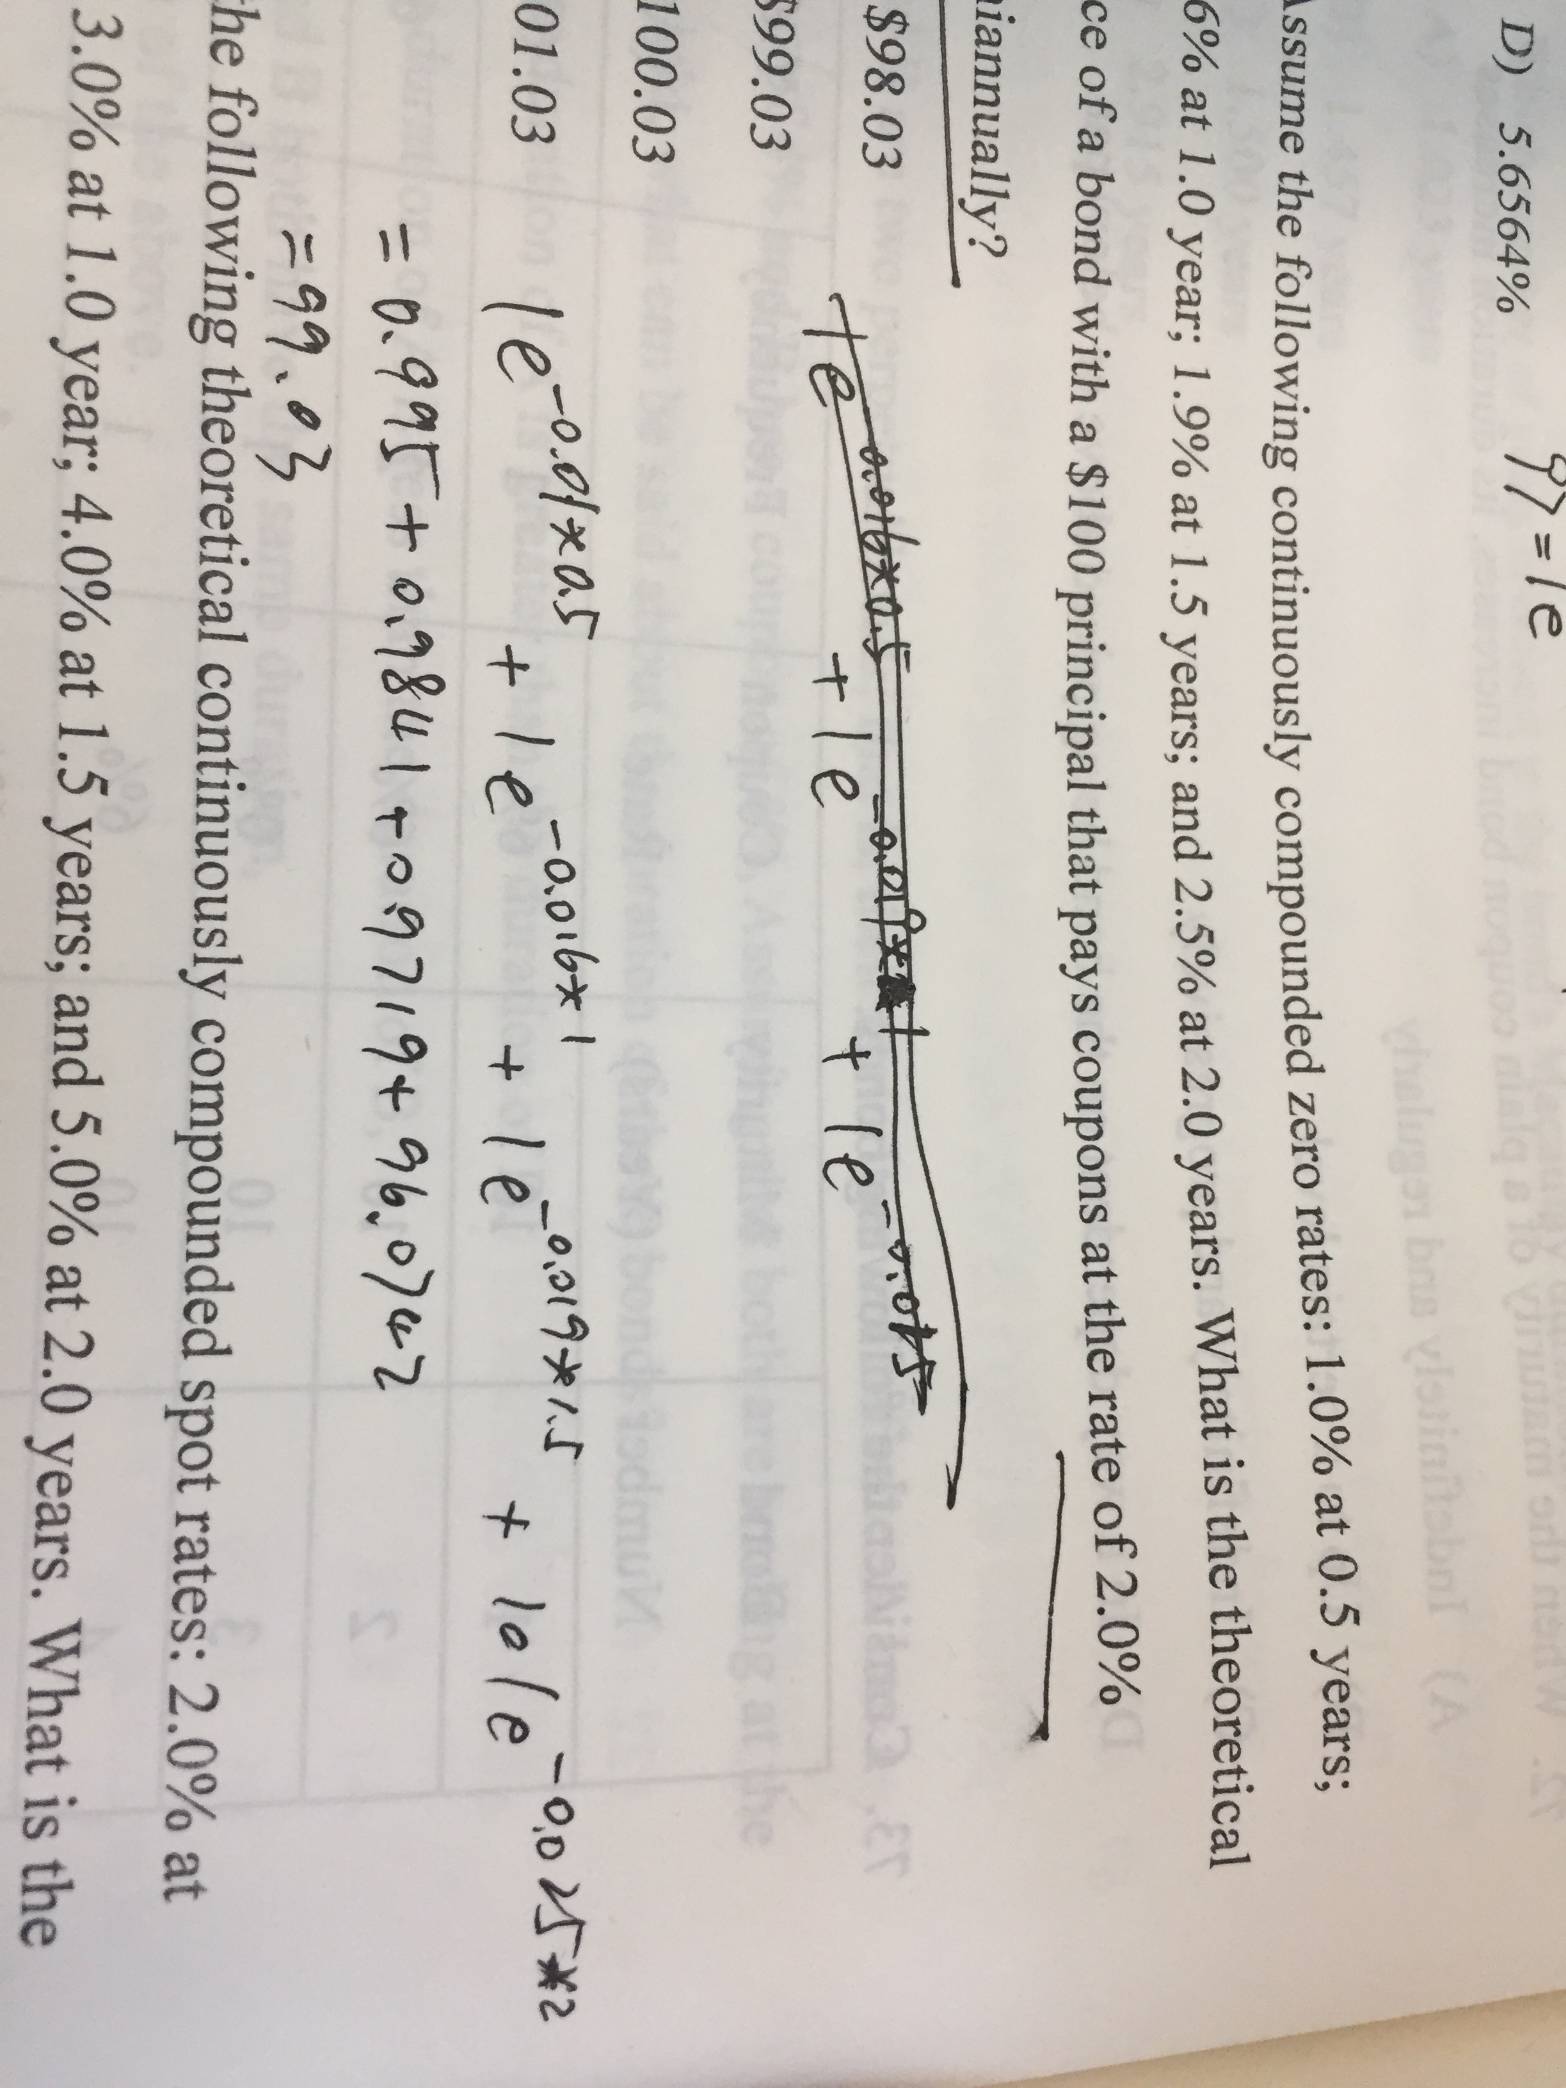 D) 5.6564%
97 = 1e
Assume the following continuously compounded zero rates: 1.0% at 0.5 years;
6% at 1.0 year; 1.9% at 1.5 years; and 2.5% at 2.0 years. What is the theoretical
ce of a bond with a $100 principal that pays coupons at the rate of 2.0%
iannually?
$98.03
$99.03
100.03
01.03
1e^-0.01*0.5 + 1e^-0.016*1 + 1e^-0.019*1.5 + 101e^-0.025*2
= 0.995 + 0.9841 + 0.9719 + 96.0742
= 99.03
the following theoretical continuously compounded spot rates: 2.0% at
3.0% at 1.0 year; 4.0% at 1.5 years; and 5.0% at 2.0 years. What is the